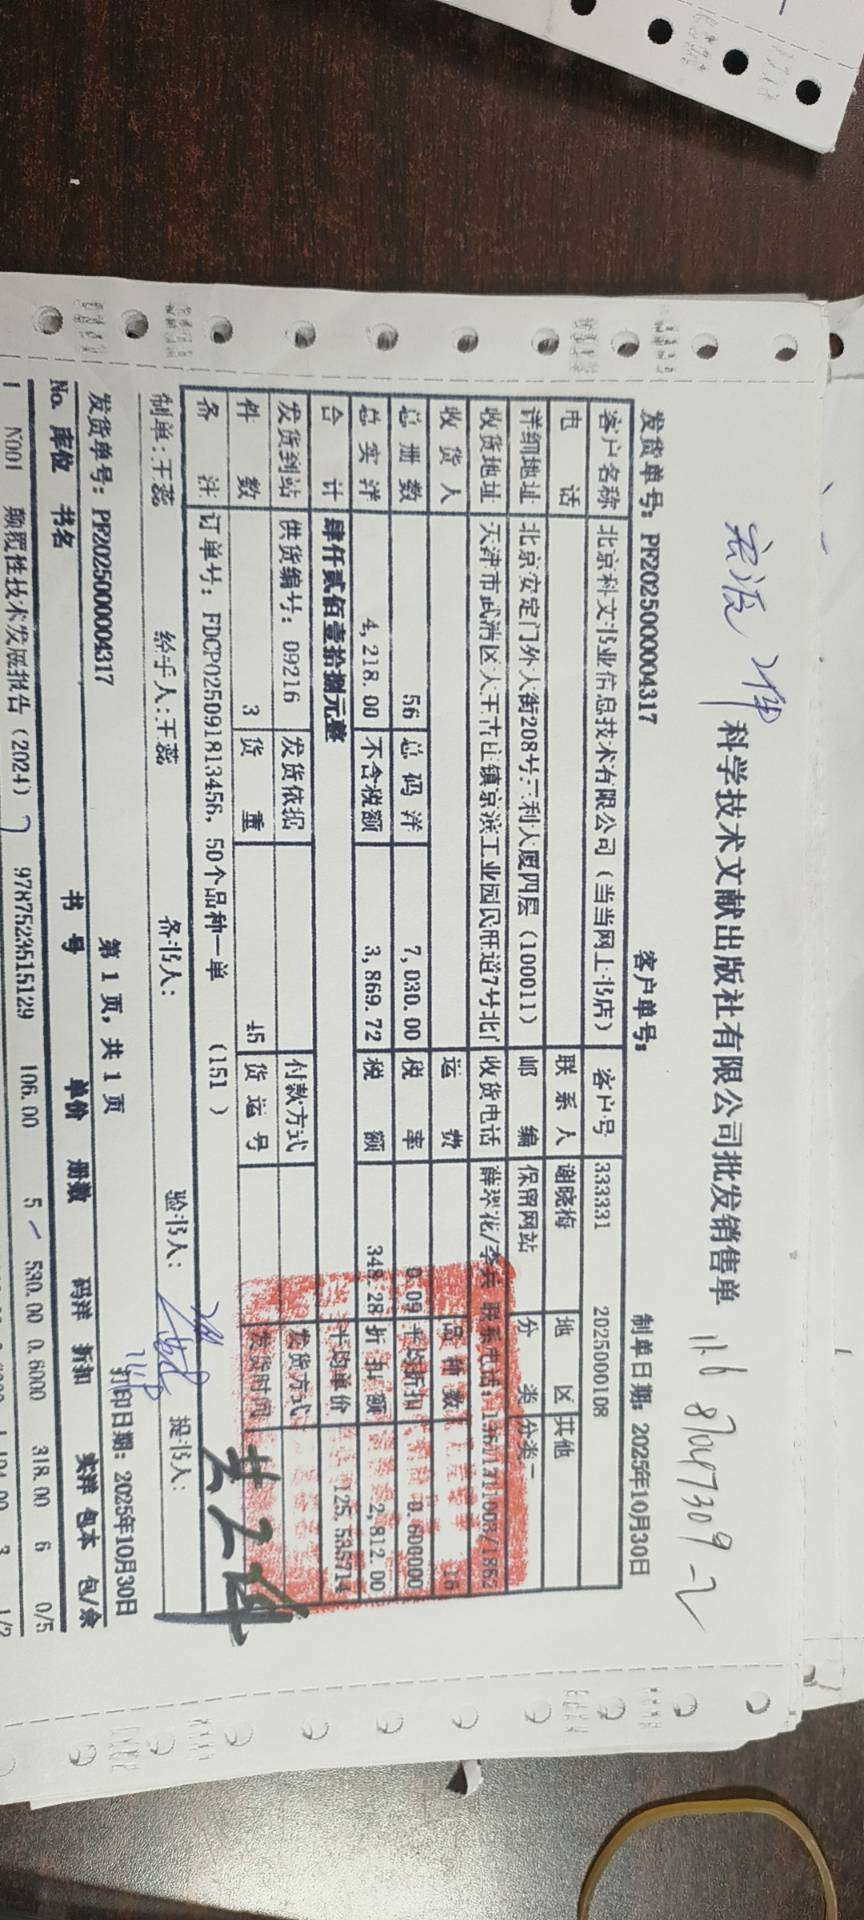 科学技术文献出版社有限公司批发销售单
11.6 87047309-2
发货单号: PF2025000004317 客户单号: 制单日期: 2025年10月30日
客户名称 北京科文书业信息技术有限公司 (当当网上书店) 客户号 333331 2025000108
电 话 联系人 谢晓梅 地 区 其他
详细地址 北京安定门外大街208号三利大厦四层 (100011) 邮 编 保留网站 分 类 分类一
收货地址 天津市武清区大王古庄镇京滨工业园民旺道7号北门 收货电话 薛翠花/李兵 联系电话:
收货人 运 费 品种数 16
总册数 56 总码洋 7,030.00 税 率 0.09 平均折扣 0.600000
总实洋 4,218.00 不含税额 3,869.72 税 额 348.28 折扣额 2,812.00
合 计 肆仟贰佰壹拾捌元整 平均单价 125.535714
发货到站 供货编号: 09216 发货依据 付款方式 发货方式
件 数 3 货 重 45 货运号 发货时间
备 注 订单号: FDCP025091813456, 50个品种一单 (151 )
制单:王蕊 经手人:王蕊 备书人: 验书人: 提书人:
共2件
第 1 页, 共 1 页 打印日期: 2025年10月30日
发货单号: PF2025000004317
No. 库位 书名 书 号 单价 册数 码洋 折扣 实洋 包本 包/余
1 N001 颠覆性技术发展报告 (2024) 9787523515129 106.00 5 530.00 0.6000 318.00 6 0/5